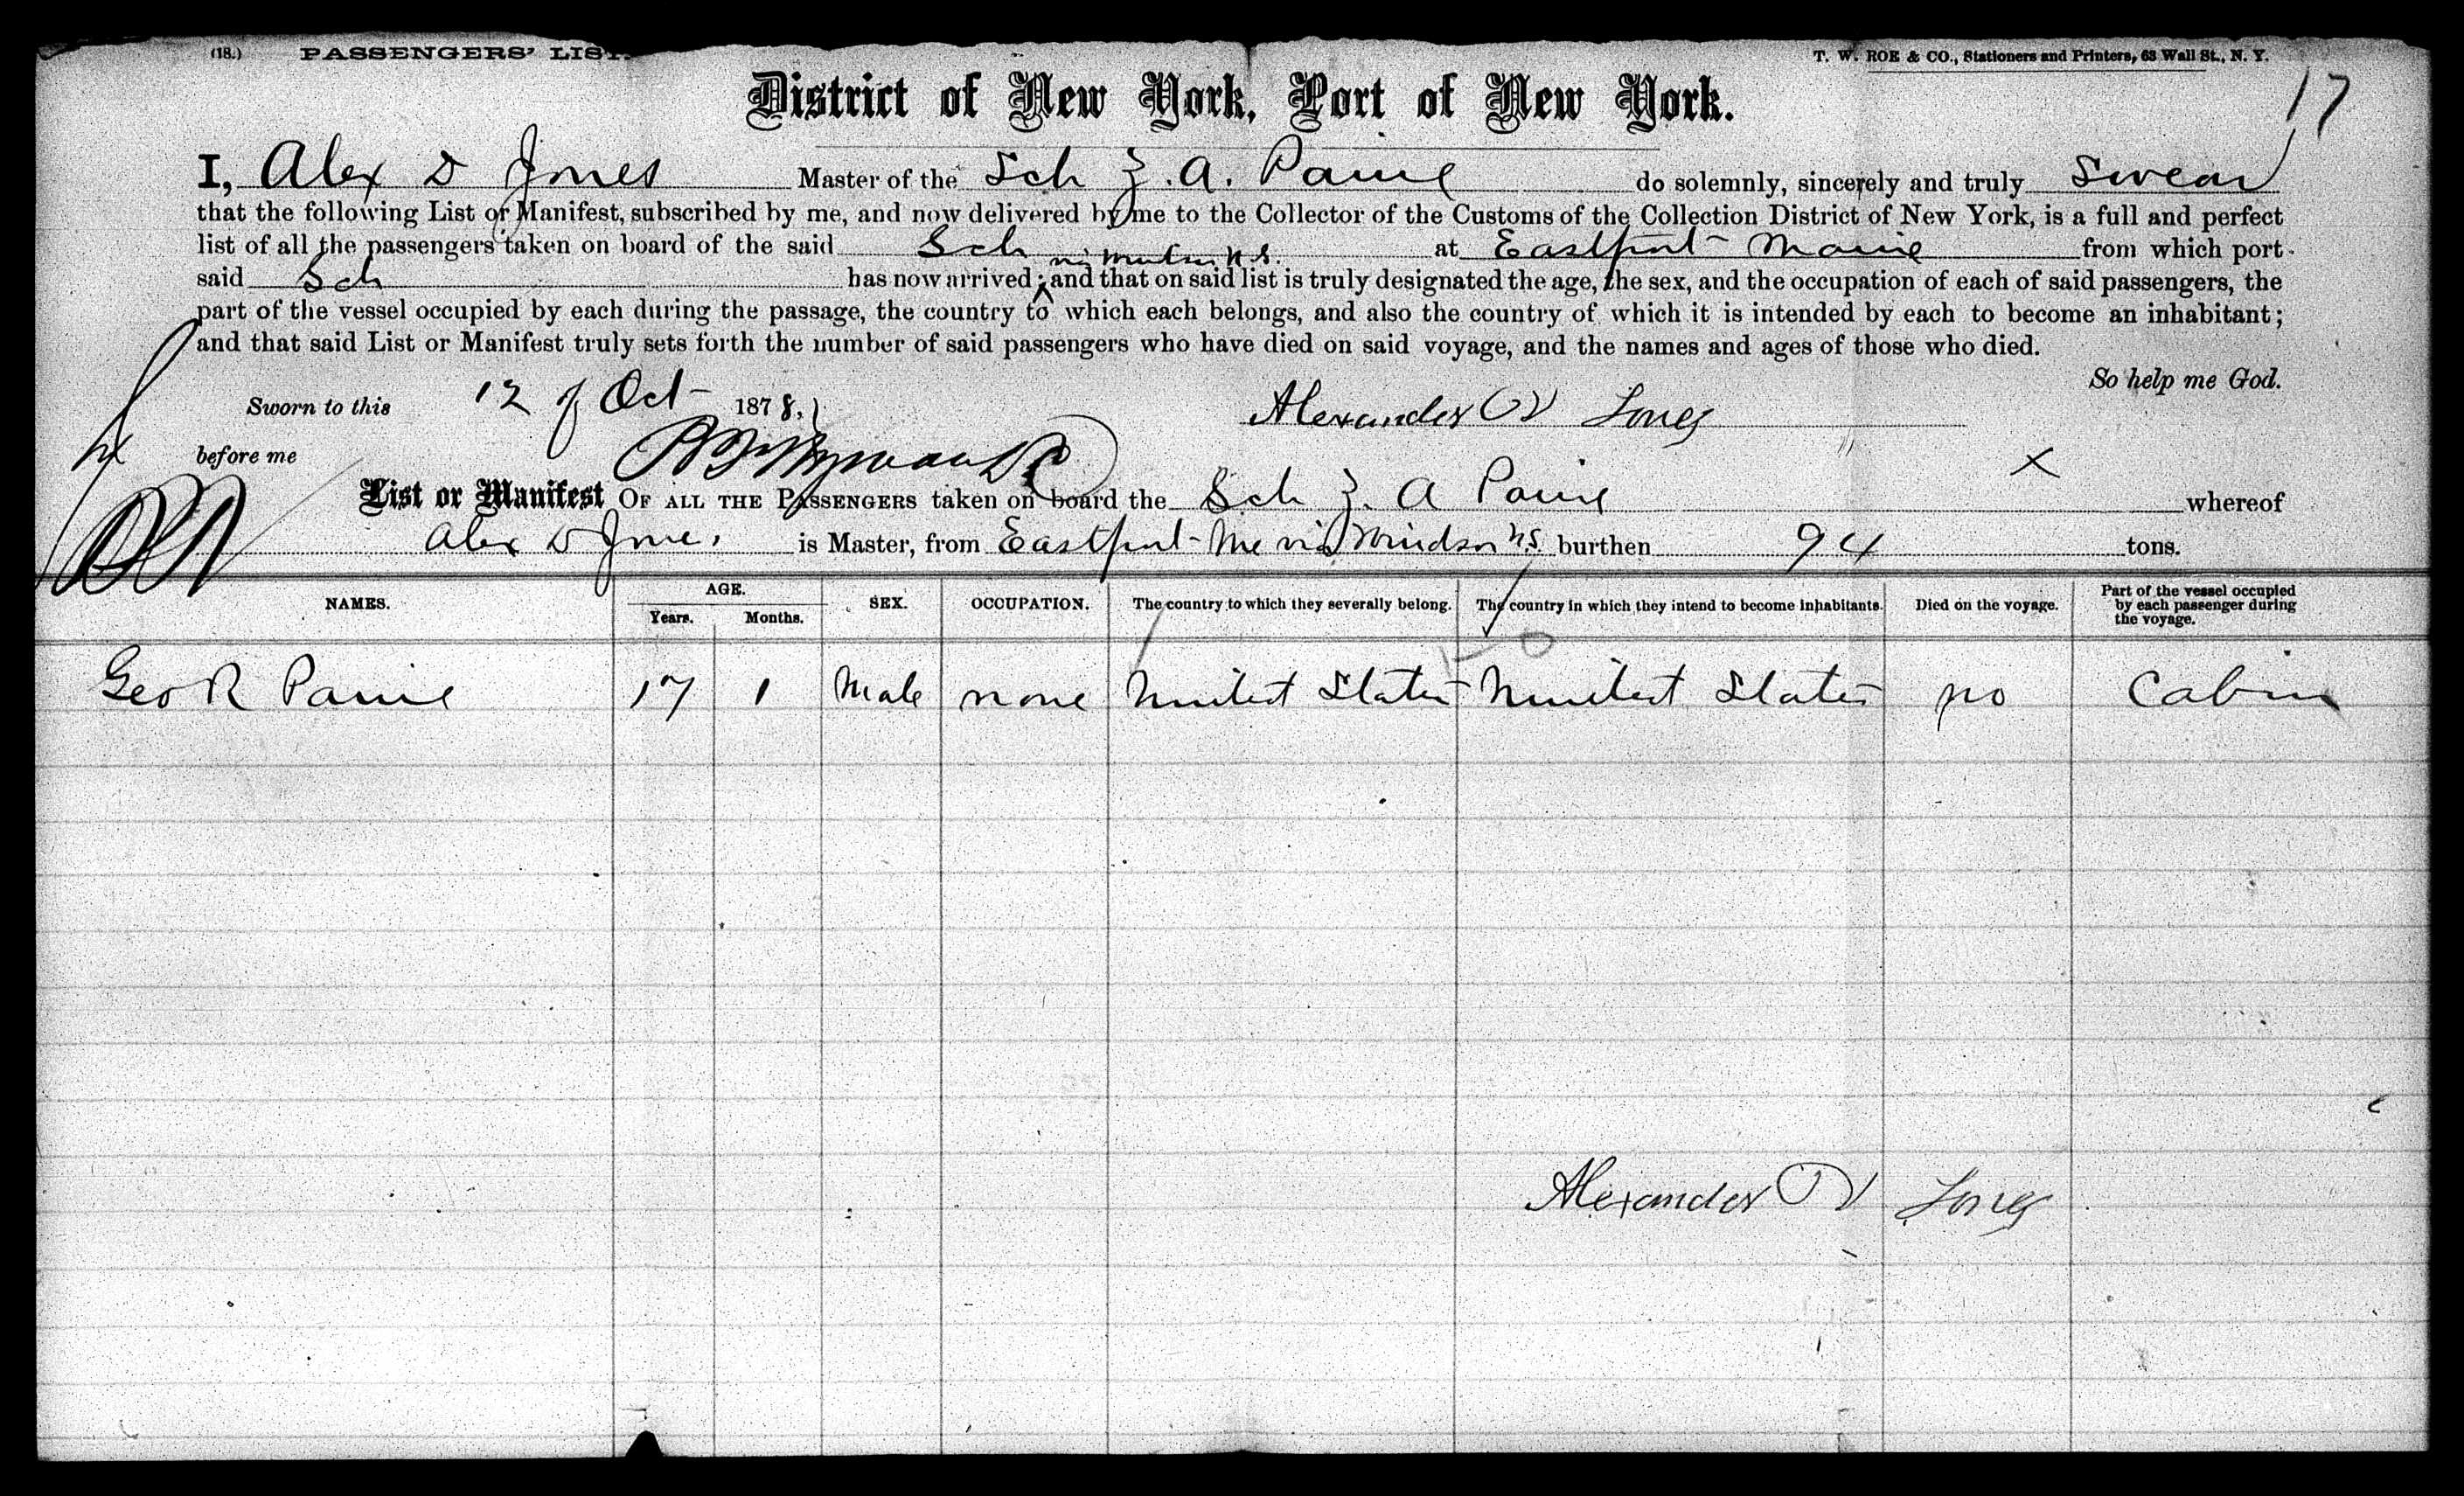 (18.) PASSENGERS' LIST. T. W. ROE & CO., Stationers and Printers, 63 Wall St., N. Y.
17
District of New York, Port of New York.
I, Alex D Jones Master of the Sch Z. A. Paine do solemnly, sincerely and truly Swear
that the following List or Manifest, subscribed by me, and now delivered by me to the Collector of the Customs of the Collection District of New York, is a full and perfect
list of all the passengers taken on board of the said Sch at Eastport Maine from which port
via Windsor N.S.
said Sch has now arrived; and that on said list is truly designated the age, the sex, and the occupation of each of said passengers, the
part of the vessel occupied by each during the passage, the country to which each belongs, and also the country of which it is intended by each to become an inhabitant;
and that said List or Manifest truly sets forth the number of said passengers who have died on said voyage, and the names and ages of those who died.
So help me God.
Sworn to this 12 of Oct 1878, Alexander D Jones
before me
List or Manifest OF ALL THE PASSENGERS taken on board the Sch Z. A Paine whereof
Alex D Jones is Master, from Eastport Me via Windsor N.S. burthen 94 tons.
NAMES. AGE. Years. Months. SEX. OCCUPATION. The country to which they severally belong. The country in which they intend to become inhabitants. Died on the voyage. Part of the vessel occupied by each passenger during the voyage.
Geo R Paine 17 1 Male none United States United States no Cabin
Alexander D Jones